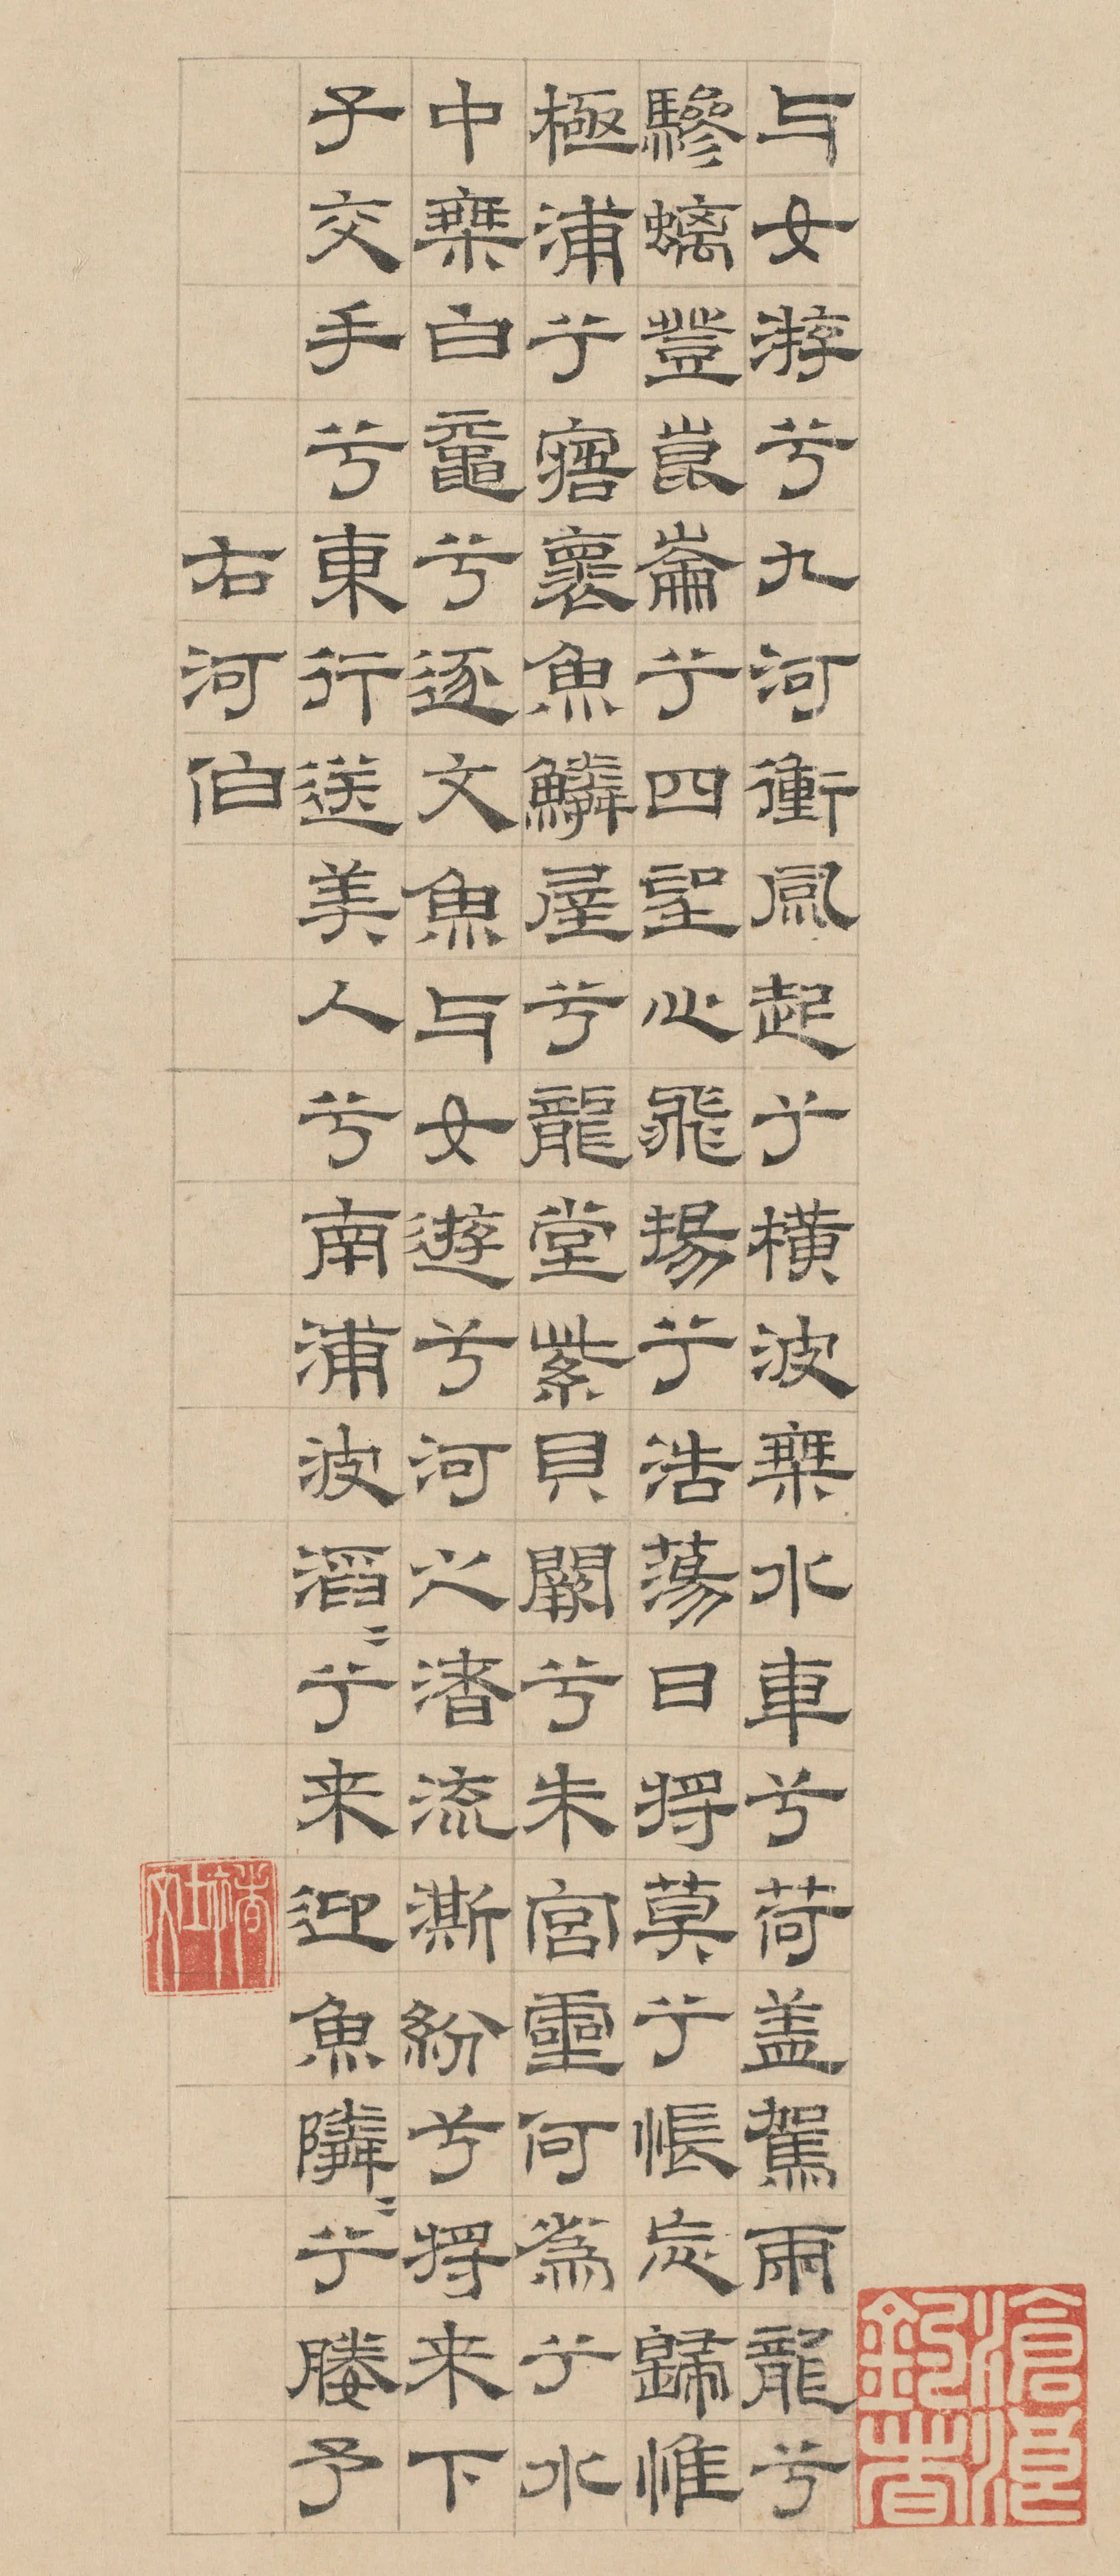 与女游兮九河衝風起兮横波椉水車兮荷盖駕兩龍兮
驂螭登崑崙兮四望心飛揚兮浩蕩日將莫兮悵忘歸惟
極浦兮寤褱魚鱗屋兮龍堂紫貝闕兮朱宮靈何為兮水
中椉白黿兮逐文魚与女遊兮河之渚流澌紛兮將来下
子交手兮東行送美人兮南浦波滔〻兮来迎魚隣〻兮媵予
右河伯
滄浪釣者